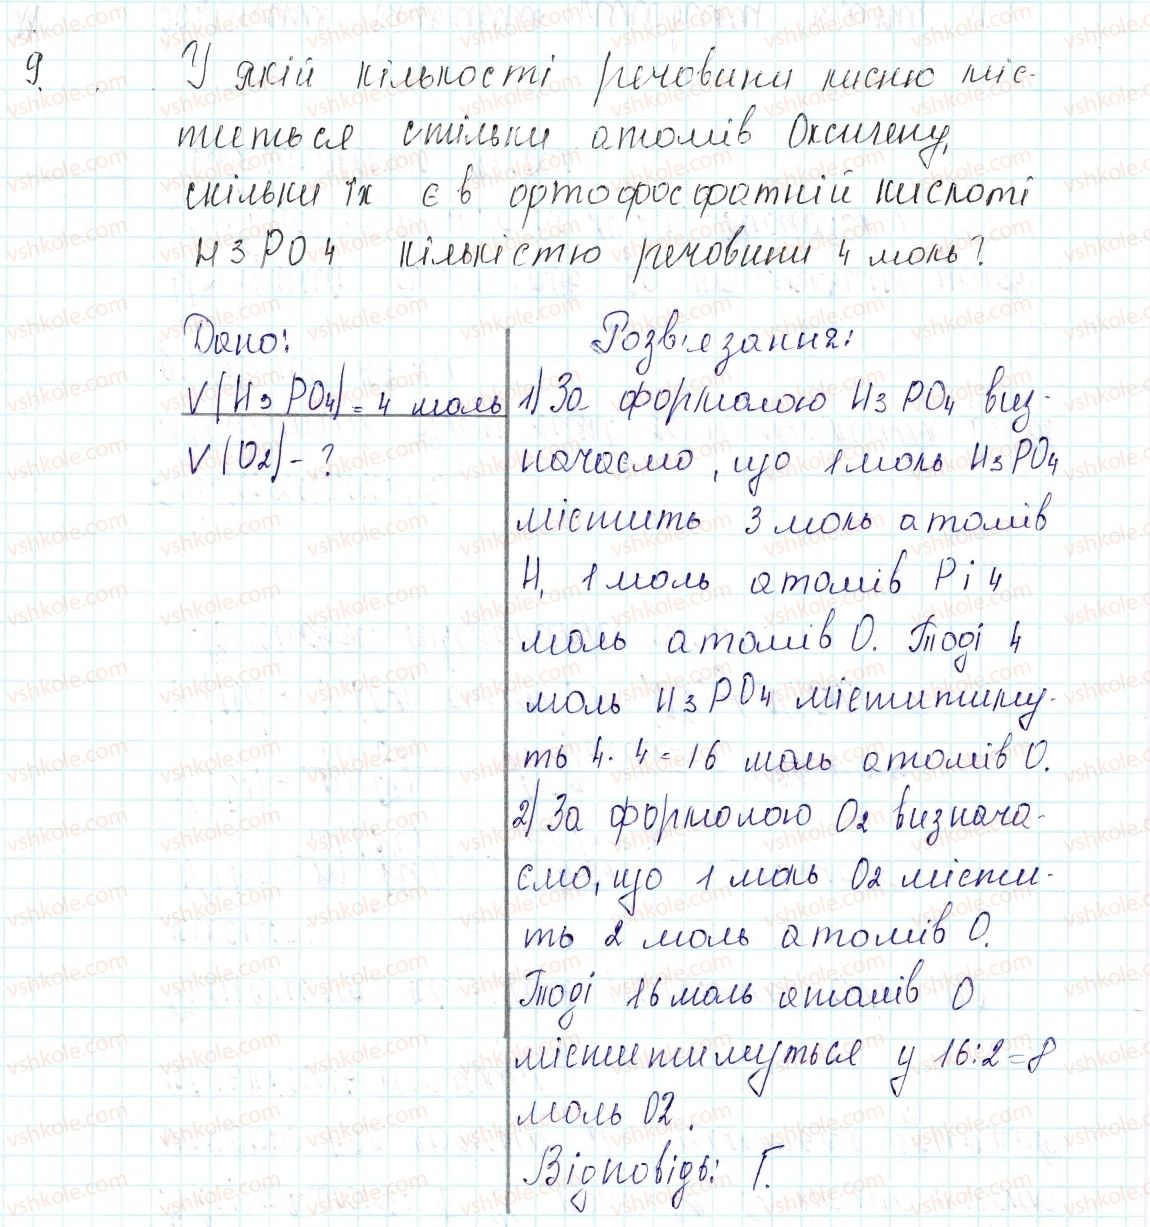 9. У якій кількості речовини кисню міс-
титься стільки атомів Оксигену,
скільки їх є в ортофосфатній кислоті
H3PO4 кількістю речовини 4 моль?
Дано:
V(H3PO4) = 4 моль
V(O2) - ?
Розв'язання:
1) За формолою H3PO4 виз-
начаємо, що 1 моль H3PO4
містить 3 моль атомів
H, 1 моль атомів P і 4
моль атомів O. Тоді 4
моль H3PO4 міститиму-
ть 4 · 4 = 16 моль атомів O.
2) За формолою O2 визнача-
ємо, що 1 моль O2 місти-
ть 2 моль атомів O.
Тоді 16 моль атомів O
міститимуться у 16:2=8
моль O2.
Відповідь: Г.